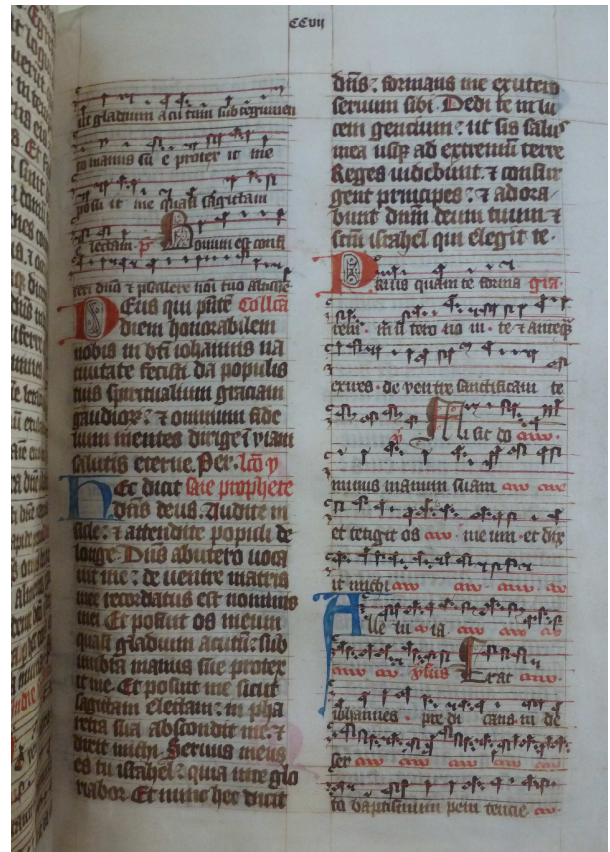 CCvii
ut gladium acutum sub tegumen
to manus su e protex it me
posu it me quasi sagittam
electam. Bonum est confi
teri dno et psallere noi tuo altissie
Deus qui pntē Collcā
diem honorabilem
nobis in bti iohannis na
tiuitate fecisti da populis
tuis spiritualium graciam
gaudiorꝝ: ⁊ omnium fide
lium mentes dirige ī viam
salutis eterne. Per. lcō y
Hec dicit saie prophete
dns deus. Audite in
sule: ⁊ attendite populi de
longe. Dns ab utero uoca
uit me: de uentre matris
mee recordatus est nominis
mei Et posuit os meum
quasi gladium acutū: sub
umbra manus sue protex
it me. Et posuit me sicut
sagittam electam: in pha
retra sua abscondit me: ⁊
dixit michi. Seruus meus
es tu israhel: quia in te glo
riabor. Et nunc hec dicit
dns: formans me ex utero
seruum sibi. Dedi te in lu
cem gencium: ut sis salus
mea usqꝫ ad extremum terre
Reges uidebunt. ⁊ consur
gent principes: ⁊ adora
bunt dnm deum tuum ⁊
scm israhel qui elegit te.
Prius quam te forma gra.
rem. in utero no ui. te ⁊ anteqꝫ
exires. de ventre sanctificaui te
Mi sit do
minus manum suam
et tetigit os me um. et dix
it michi
Alle lu ia.
ysus Erat
iohannes. pre di cans in de
ser
to baptismum peni tencie.